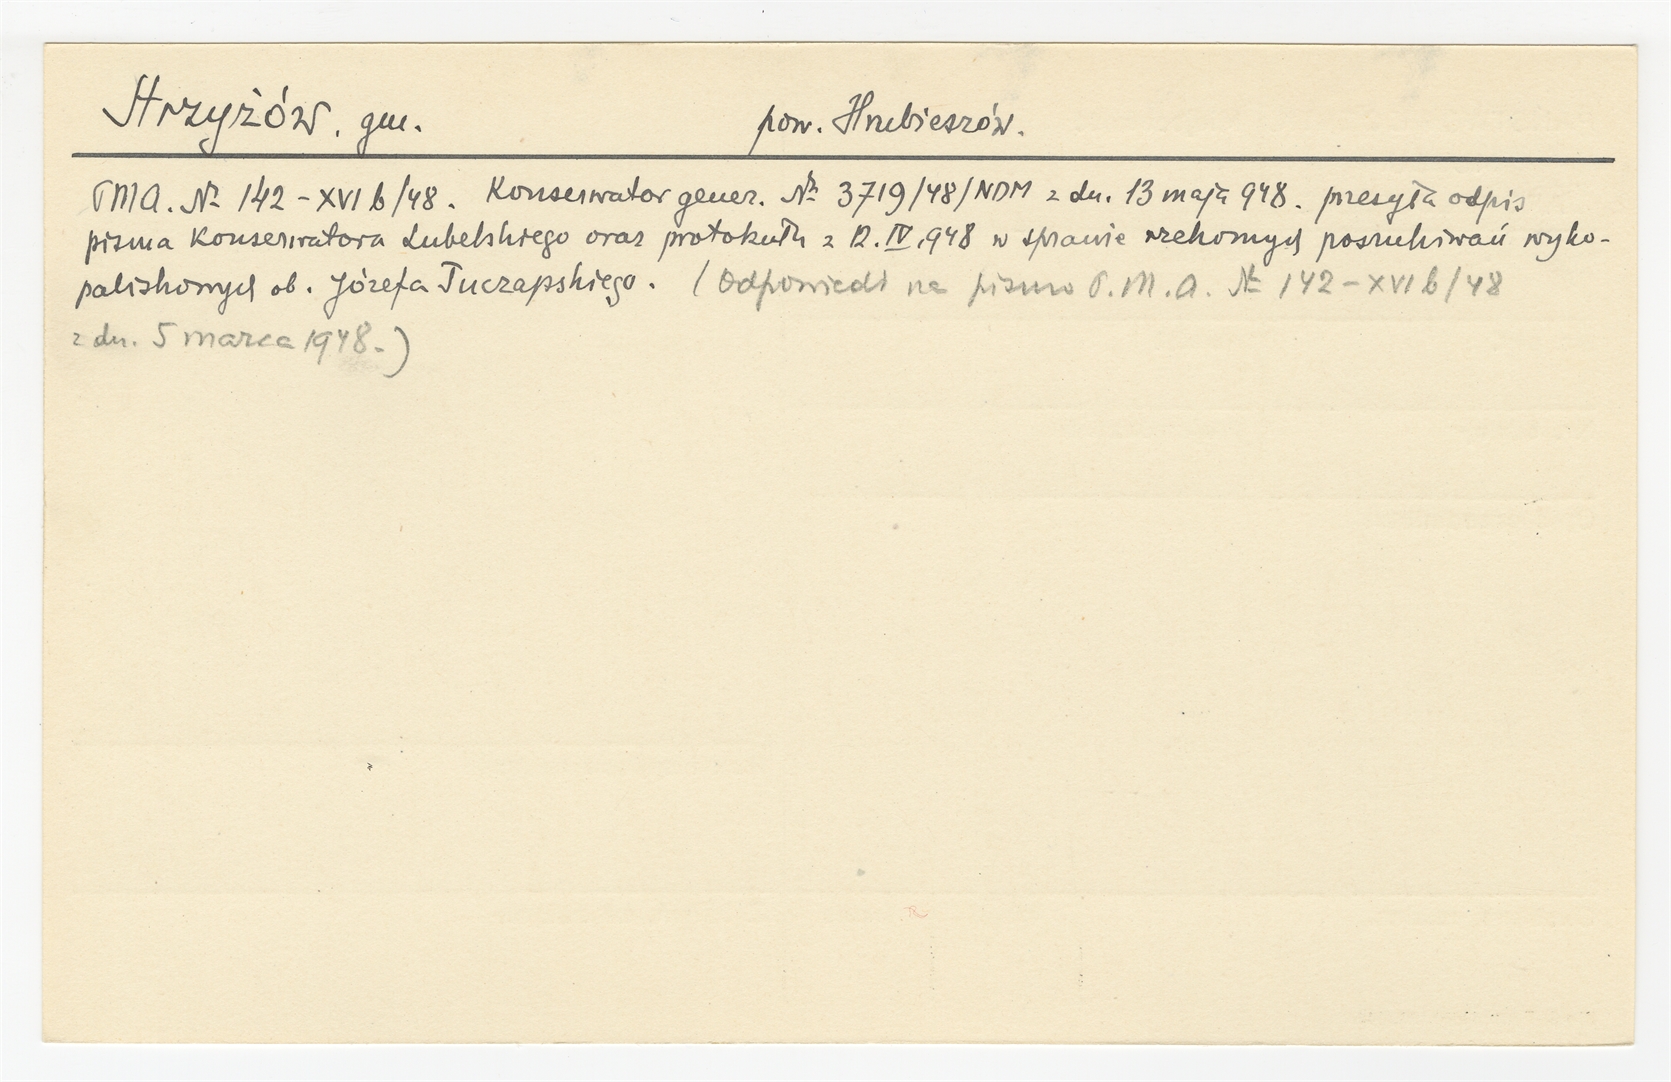 Strzyżów. gm. pow. Hrubieszów.
PMA. № 142-XVI b/48. Konserwator gener. № 3719/48/NDM z dn. 13 maja 948. przesyła odpis
pisma Konserwatora Lubelskiego oraz protokułu z 12.IV.948 w sprawie rzekomych poszukiwań wyko-
paliskowych ob. Józefa Tuczapskiego. (Odpowiedź na pismo P.M.A. № 142-XVI b/48
z dn. 5 marca 1948.)